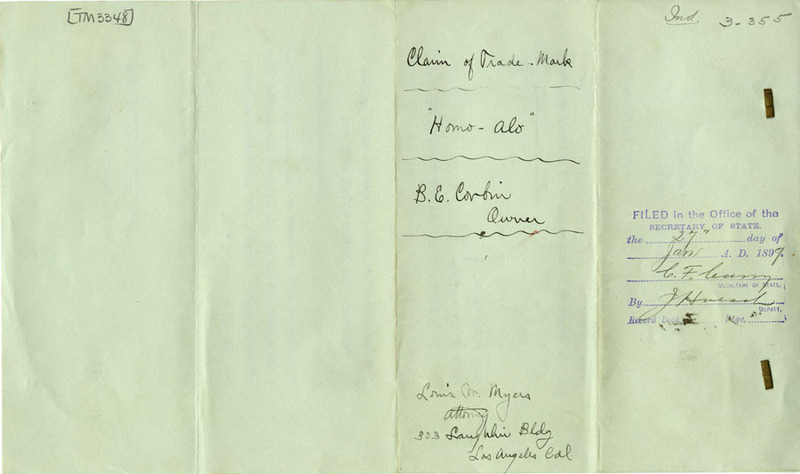 [TM3348]
Claim of Trade-Mark
"Homo-Alo"
B. E. Corbin
Owner
Louis M. Myers
Attorney
303 Laughlin Bldg
Los Angeles Cal.
Ind. 3-355
FILED in the Office of the
SECRETARY OF STATE.
the 27" day of
Jan A. D. 1897.
C. F. Curry
SECRETARY OF STATE.
By J. Hoesch
DEPUTY.
Record Page,